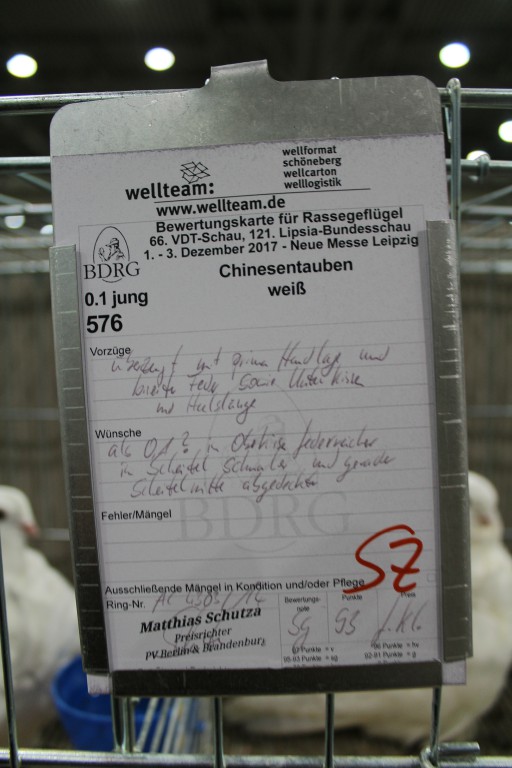 wellformat
schöneberg
wellcarton
welllogistik
wellteam:
www.wellteam.de
Bewertungskarte für Rassegeflügel
66. VDT-Schau, 121. Lipsia-Bundesschau
1. - 3. Dezember 2017 - Neue Messe Leipzig
BDRG
Chinesentauben
weiß
0.1 jung
576
Vorzüge
mit prima und
breite Feder sowie
und Halslänge
Wünsche
als 0,1? in federreicher
in Scheitel schmaler und gerader
Scheitelmitte
BDRG
Fehler/Mängel
SZ
Ausschließende Mängel in Kondition und/oder Pflege
Ring-Nr.
Matthias Schutza
Preisrichter
PV Berlin & Brandenburg
Bewertungs-
note
Punkte
Preis
sg 93
97 Punkte = v
96 Punkte = hv
95-93 Punkte = sg
92-91 Punkte = g